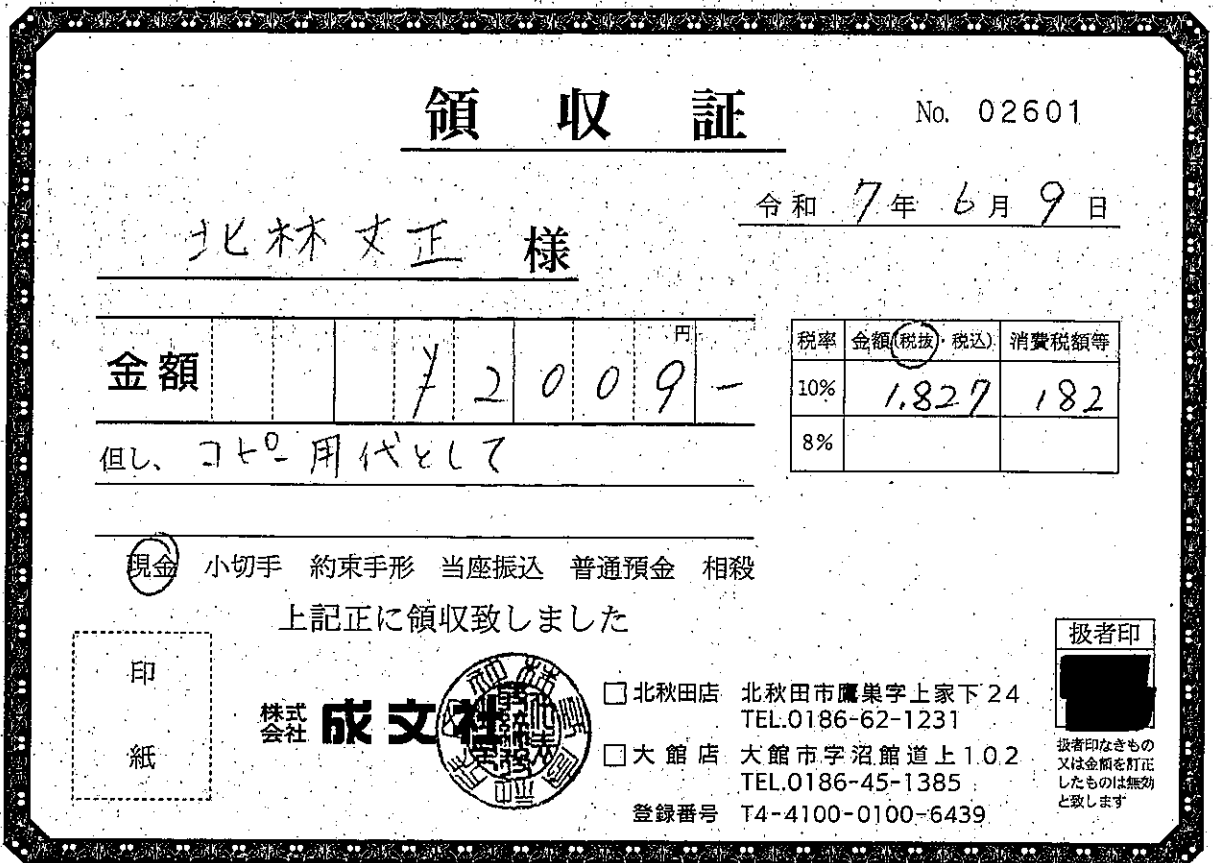 領収証
No. 02601
令和 7年 6月 9日
北林丈正 様
金額 ¥2009-
円
税率 金額(税抜・税込) 消費税額等
10% 1,827 182
8%
但し、コピー用代として
現金 小切手 約束手形 当座振込 普通預金 相殺
上記正に領収致しました
印紙
株式会社 成文社
北秋田店 北秋田市鷹巣字上家下24
TEL.0186-62-1231
大館店 大館市字沼館道上102
TEL.0186-45-1385
登録番号 T4-4100-0100-6439
扱者印
扱者印なきもの
又は金額を訂正
したものは無効
と致します